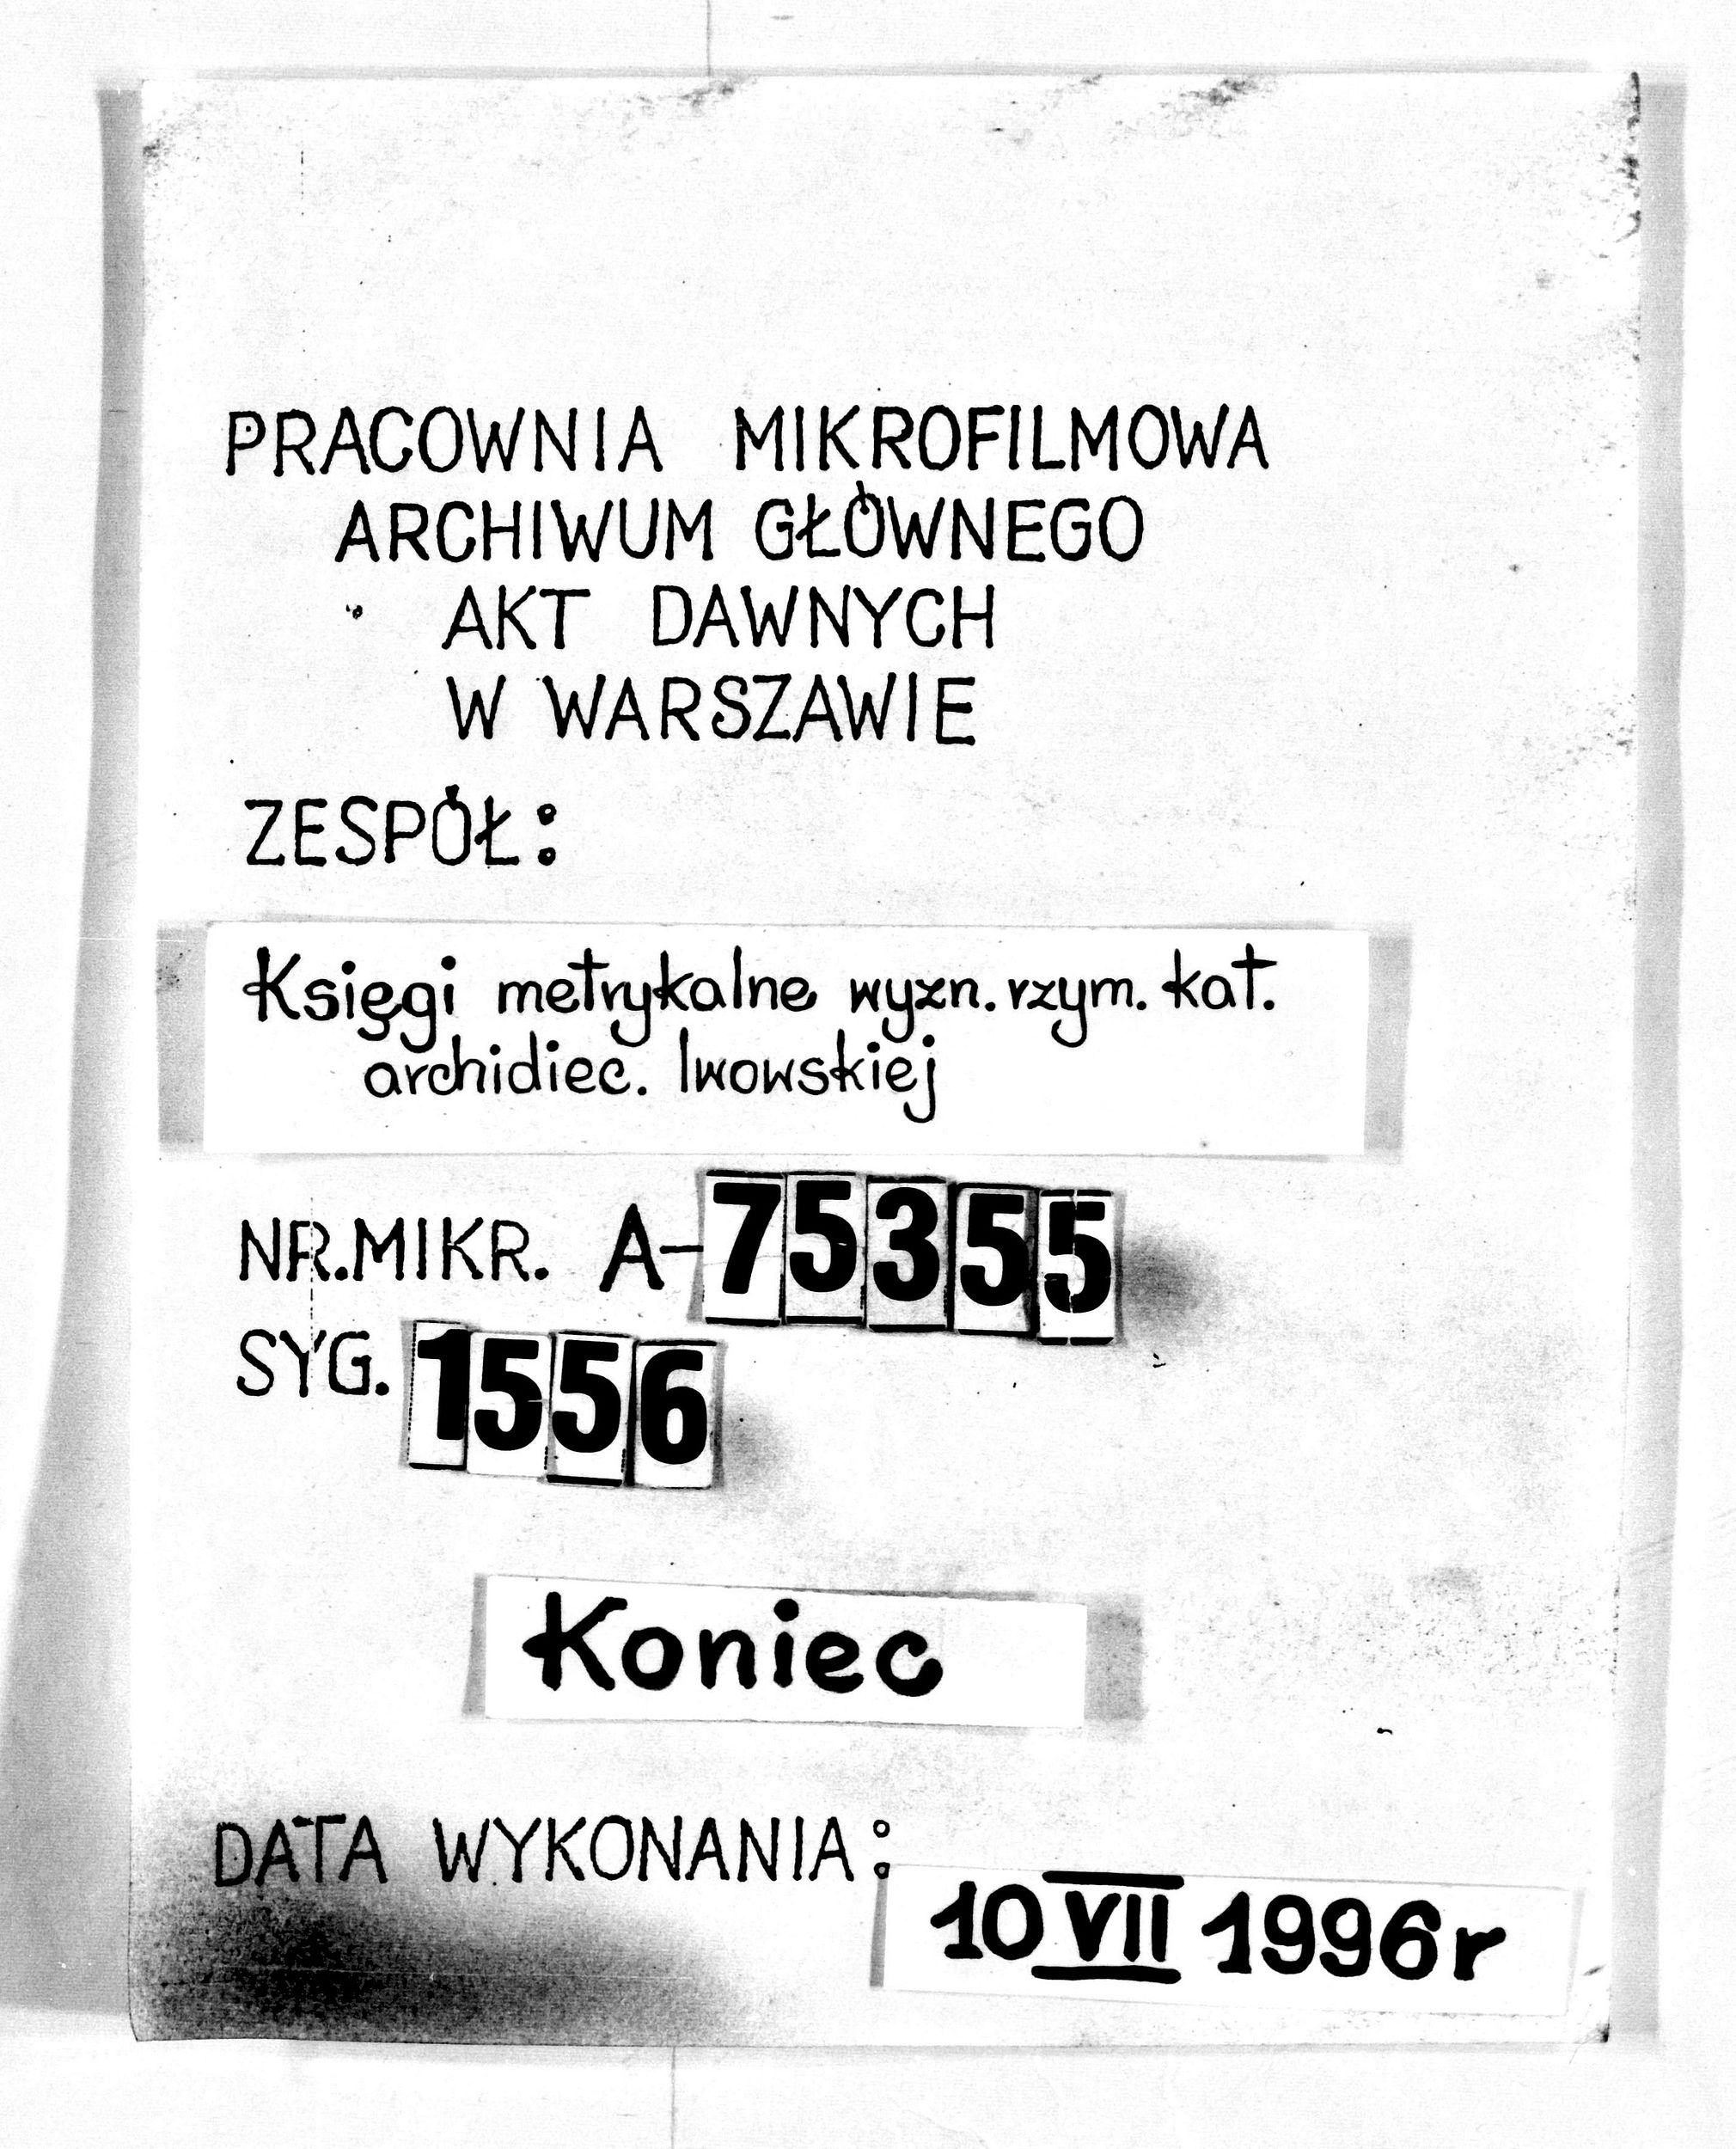 PRACOWNIA MIKROFILMOWA
ARCHIWUM GŁÓWNEGO
AKT DAWNYCH
W WARSZAWIE
ZESPÓŁ:
Księgi metrykalne wyzn. rzym. kat.
archidiec. lwowskiej
NR.MIKR. A-75355
SYG. 1556
Koniec
DATA WYKONANIA:
10 VII 1996 r